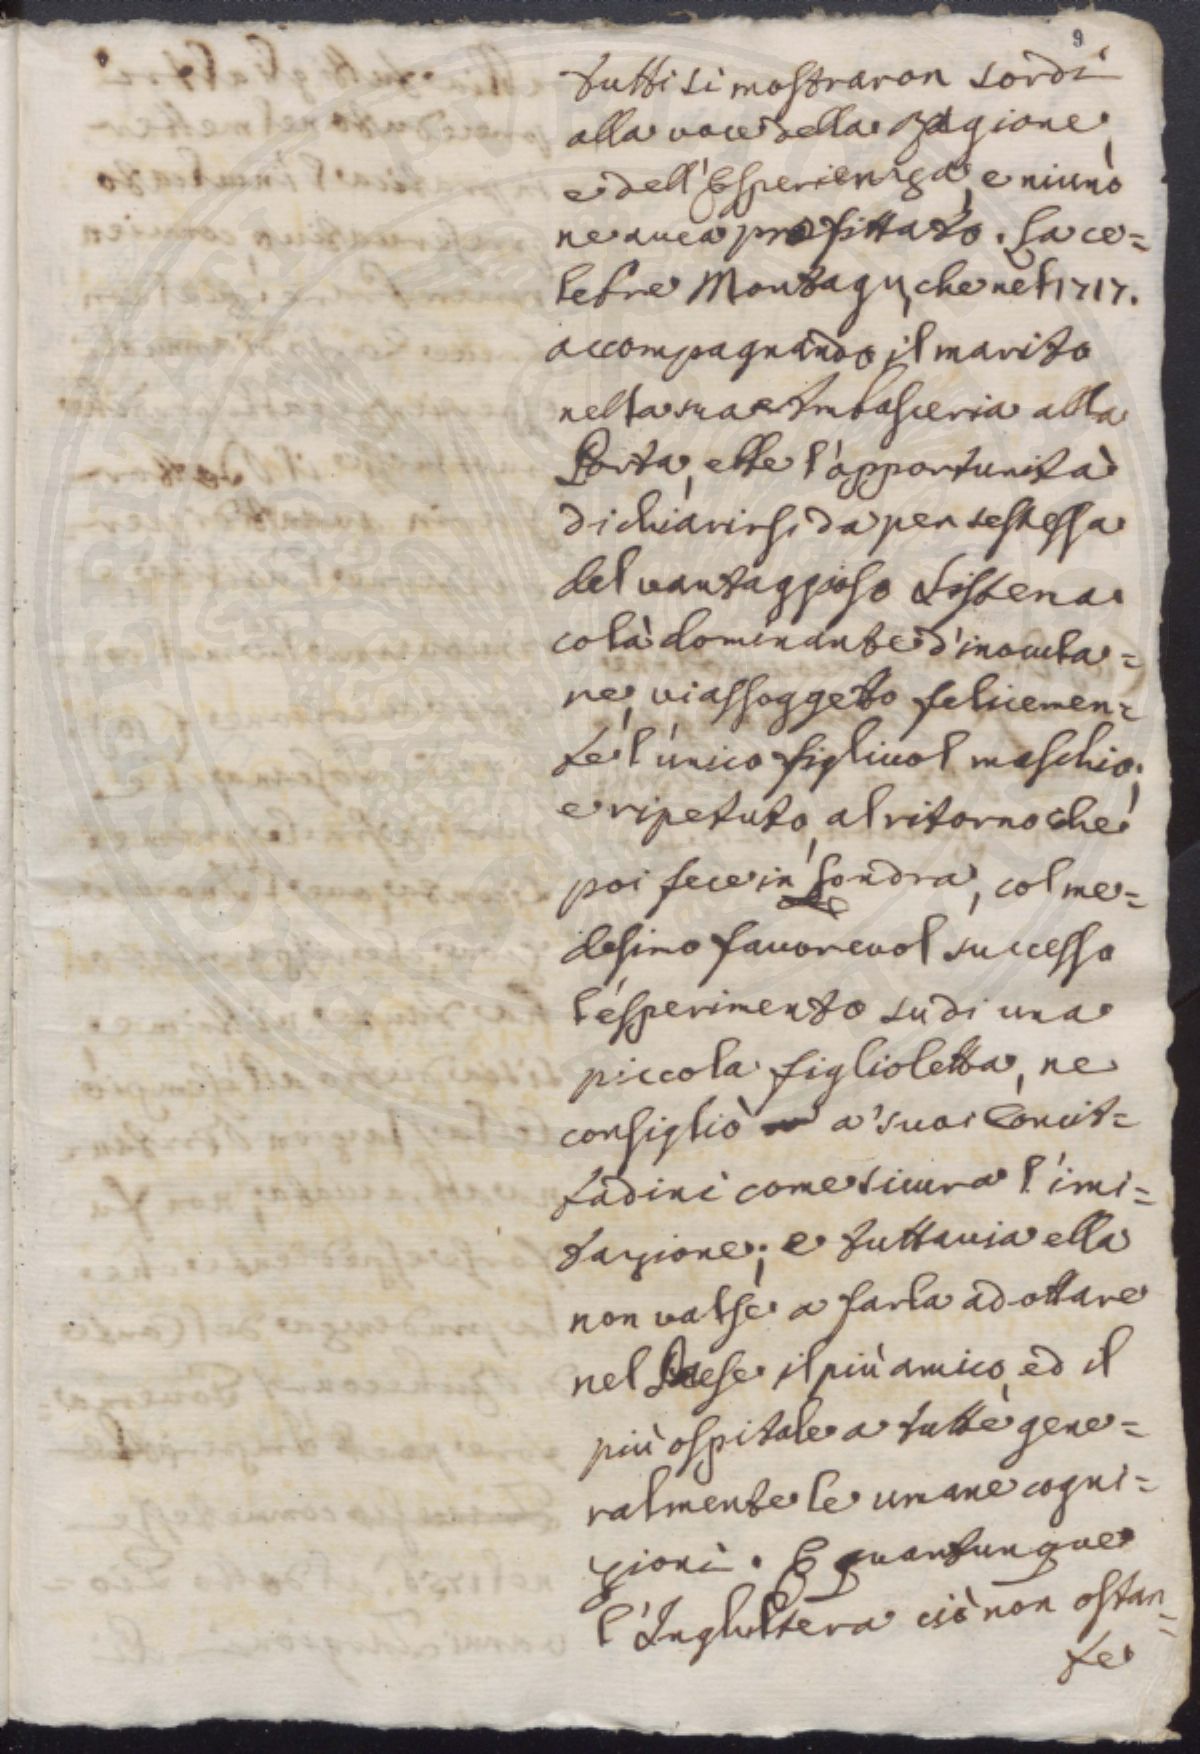 9
tutti si mostraron sordi
alla voce della Ragione,
e dell'Esperienza, e niuno
ne avea profittato. La ce=
lebre Montagu, che nel 1717.
accompagnando il marito
nella sua Imbasceria alla
Porta, ebbe l'opportunità
di chiarirsi da per se stessa
del vantaggioso Sistema
colà dominante d'inocula=
re, vi assoggetò felicemen=
te l'unico figliuol maschio;
e ripetuto, al ritorno che
poi fece in Londra, col me=
desimo favorevol successo
l'esperimento su di una
piccola figlioletta, ne
consigliò a' suoi Concit=
tadini come sicura l'imi=
tazione; e tuttavia ella
non valse a farla adottare
nel Paese il più amico, ed il
più ospitale a tutte gene=
ralmente le umane cogni=
zioni. E quantunque
l'Inghilterra ciò non ostan=
te